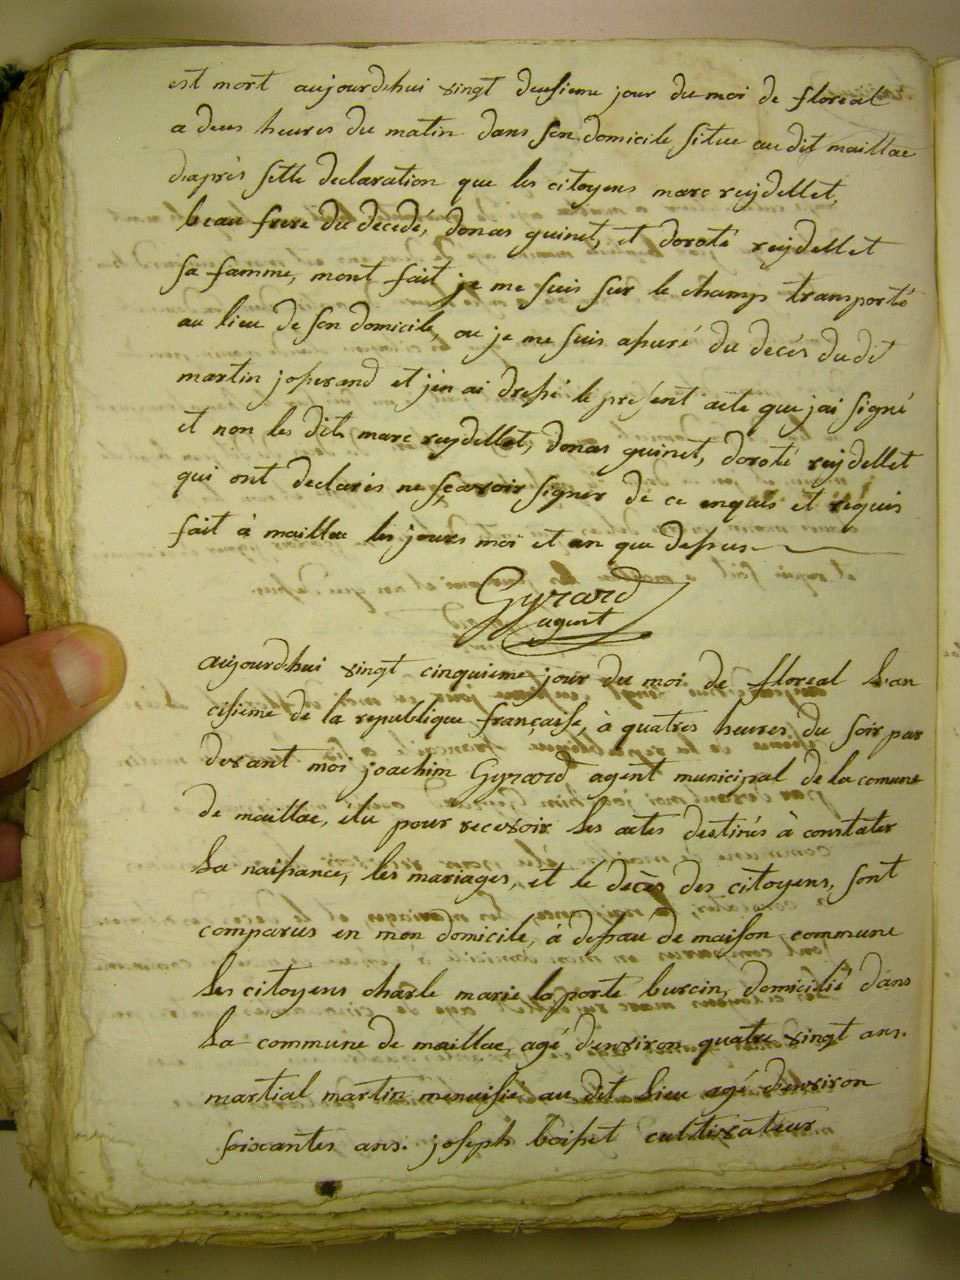 est mort aujourdhui vingt deusieme jour du moi de floréal
a deus heures du matin dans son domicile situe au dit maillac
daprès sette declaration que les citoyens marc reydellet,
beau frere du decedé, donas guinet, et doroté reydellet
sa famme, mont fait je me suis sur le champs transporté
au lieu de son domicile, ou je me suis assuré du decés du dit
martin josserand et jen ai dressé le présent acte que jai signé
et non les dits marc reydellet, donas guinet, doroté reydellet
qui ont declarés ne sçavoir signer de ce enquis et requis
fait à maillac les jours moi et an que dessus
Gyrard
agent
aujourdhui vingt cinquieme jour du moi de floreal l'an
cisieme de la republique française, à quatres heures du soir par
devant moi joachim Gyrard agent municipal de la comune
de maillac, élu pour recevoir les actes destinés à constater
la naissance, les mariages, et le décès des citoyens, sont
comparus en mon domicile, à defau de maison commune
les citoyens charle marie la porte burcin, domicilié dans
la commune de maillac, agé d'environ quatre vingt ans.
martial martin menuisié au dit lieu agé d'environ
soiscantes ans. joseph boisset cultivateur